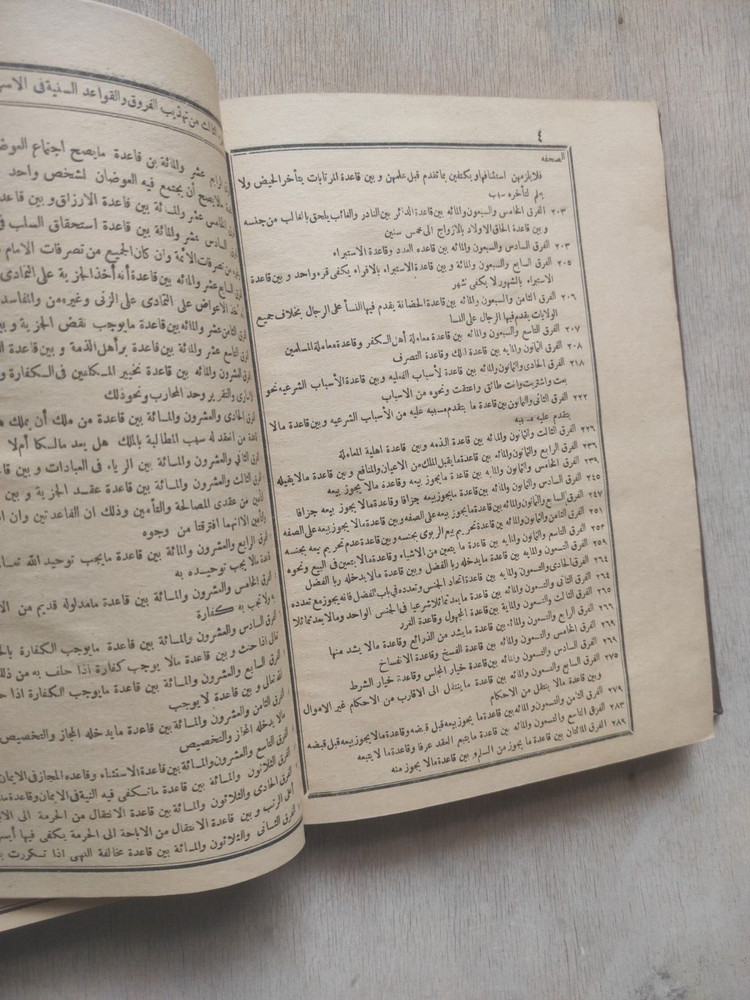 ٤
الصحفه
فلايلزمهن استئنافها ويكتفين بما تقدم قبل علمهن و بين قاعدة المرتابات يتأخر الحيض ولا
يعلم لتأخره سبب
٢٠٣ الفرق الخامس والسبعون والمائه بين قاعدة الدائر بين النادر والغالب يلحق بالغالب من جنسه
و بين قاعدة الحاق الاولاد بالازواج الى خمس سنين
٢٠٣ الفرق السادس والسبعون والمائه بين قاعدة العدد وقاعدة الاستبراء
٢٠٥ الفرق السابع والسبعون والمائة و بين قاعدة الاستبراء بالاقراء يكفى قرء واحد و بين قاعدة
الاستبراء بالشهور لا يكفى شهر
٢٠٦ الفرق الثامن والسبعون والمائه بين قاعدة الحضانة يقدم فيها النسا على الرجال بخلاف جميع
الولايات يقدم فيها الرجال على النسا
٢٠٧ الفرق التاسع والسبعون والمائه بين قاعدة معاملة أهل الكفر وقاعدة معاملة المسلمين
٢٠٨ الفرق الثمانون والمايه بين قاعدة الملك وقاعدة التصرف
٢١٨ الفرق الحادى والثمانون والمائه بين قاعدة لأسباب الفعليه و بين قاعدة الأسباب الشرعيه نحو
بعت واشتريت وانت طالق واعتقت ونحوه من الاسباب
٢٢٢ الفرق الثانى والثمانون بين قاعدة ما يتقدم مسببيه عليه من الأسباب الشرعيه و بين قاعدة مالا
يتقدم عليه مسببه
٢٢٦ الفرق الثالث والثمانون والمائه بين قاعدة الذمه و بين قاعدة اهلية المعاملة
٢٣٦ الفرق الرابع والثمانون والمائه بين قاعدة ما يقبل الملك من الاعيان والمنافع و بين قاعدة مالا يقبله
٢٣٩ الفرق الخامس والثمانون والمايه بين قاعدة مايجوز بيعه وقاعدة مالا يجوز بيعه
٢٤٥ الفرق السادس والثمانون والمائه بين قاعدة مايجوز بيعه جزافا وقاعدة مالا يجوز بيعه جزافا
٢٤٧ الفرق السابع والثمانون والمائه بين قاعدة مايجوز بيعه على الصفه و بين قاعدة مالا يجوز بيعه على الصفه
٢٥١ الفرق الثامن والثمانون والمائه بين قاعدة تحريم بيع الربوى بجنسه و بين قاعدة عدم تحريم بيعه بجنسه
٢٥٦ الفرق التاسع والثمانون والمائه بين قاعدة ما يتعين من الاشياء وقاعدة مالا يتعين فى البيع ونحوه
٢٥٩ الفرق التسعون والمايه بين قاعدة مايدخله ربا الفضل و بين قاعدة مالا يدخله ربا الفضل
٢٦٤ الفرق الحادى والتسعون والمايه بين قاعدة اتحاد الجنس وتعدده فى باب الفضل فانه يجوز مع تعدده
٢٦٤ الفرق الثانى والتسعون والمائه بين قاعدة ما يعد تماثلا شرعيا فى الجنس الواحد ومالا يعد تماثلا
٢٦٥ الفرق الثالث والتسعون والمايه بين قاعدة المجهول وقاعدة الغرر
٢٦٦ الفرق الرابع والتسعون والمائه بين قاعدة مايسد من الذرائع وقاعدة مالا يسد منها
٢٦٩ الفرق الخامس والتسعون والمائه بين قاعدة الفسخ وقاعدة الانفساخ
٢٦٩ الفرق السادس والتسعون والمائه بين قاعدة خيار المجلس وقاعدة خيار الشرط
٢٧٥ الفرق السابع والتسعون والمائه بين قاعدة ما ينتقل الى الاقارب من الاحكام غير الاموال
وبين قاعدة مالا ينتقل من الاحكام
٢٧٩ الفرق الثامن والتسعون والمائه بين قاعدة ما يجوز بيعه قبل قبضه وقاعدة مالا يجوز بيعه قبل قبضه
٢٨٣ الفرق التاسع والتسعون والمائه بين قاعدة مايتبع العقد عرفا وقاعدة ما لا يتبعه
٢٨٩ الفرق المائتان بين قاعدة ما يجوز من السلم و بين قاعدة مالا يجوز منه
الثالث من تهذيب الفروق والقواعد السنية فى الاسر
الرابع عشر والمائة بين قاعدة مايصح اجتماع العوض
مالايصح أن يجتمع فيه العوضان لشخص واحد
الخامس عشر والمائة بين قاعدة الارزاق و بين قاعدة
السادس عشر والمائة بين قاعدة استحقاق السلب فى
من تصرفات الأئمة وان كان الجميع من تصرفات الامام
السابع عشر والمائه بين قاعدة أنه أخذ الجزية على التمادى
أخذ الاعواض على التمادى على الزنى وغيره من المفاسد
الثامن عشر والمائه بين قاعدة مايوجب نقض الجزية و بين
التاسع عشر والمائة بين قاعدة بر أهل الذمة و بين قاعدة
العشرون والمائه بين قاعدة تخيير المكلفين فى الكفارة و
الاسارى والتقرير وحد المحارب ونحو ذلك
الفرق الحادى والعشرون والمائة بين قاعدة من ملك أن يملك
قاعدة من انعقد له سبب المطالبة بالملك هل يعد مالكا أم لا
الفرق الثانى والعشرون والمائة بين الرياء فى العبادات و بين
الفرق الثالث والعشرون والمائة بين قاعدة عقد الجزية و بين
من عقدى المصالحة والتأمين وذلك ان القاعدتين وان
الا انهما افترقتا من وجوه
الفرق الرابع والعشرون والمائة بين قاعدة مايجب توحيد الله تعالى
قاعدة مالا يجب توحيده به
الفرق الخامس والعشرون والمائة بين قاعدة مامدلوله قديم من
ولا تجب به كفارة
الفرق السادس والعشرون والمائة بين قاعدة مايوجب الكفارة
تعالى اذا حنث و بين قاعدة مالا يوجب كفارة اذا حلف به من ذلك
الفرق السابع والعشرون والمائة بين قاعدة مايوجب الكفارة اذا
الله تعالى و بين قاعدة لا يوجب
الفرق الثامن والعشرون والمائة بين قاعدة مايدخله المجاز والتخصيص
مالا يدخله المجاز والتخصيص
الفرق التاسع والعشرون والمائة بين قاعدة الاستثناء وقاعده المجاز فى الايمان
الفرق الثلاثون والمائة بين قاعدة ماتكفى فيه النية فى الايمان وقاعدة
الفرق الحادى والثلاثون والمائة بين قاعدة الانتقال من الحرمة الى
أعلى الرتب و بين قاعدة الانتقال من الاباحة الى الحرمة يكفى فيها أيسر
الفرق الثانى والثلاثون والمائة بين قاعدة مخالفة النهى اذا تكررت